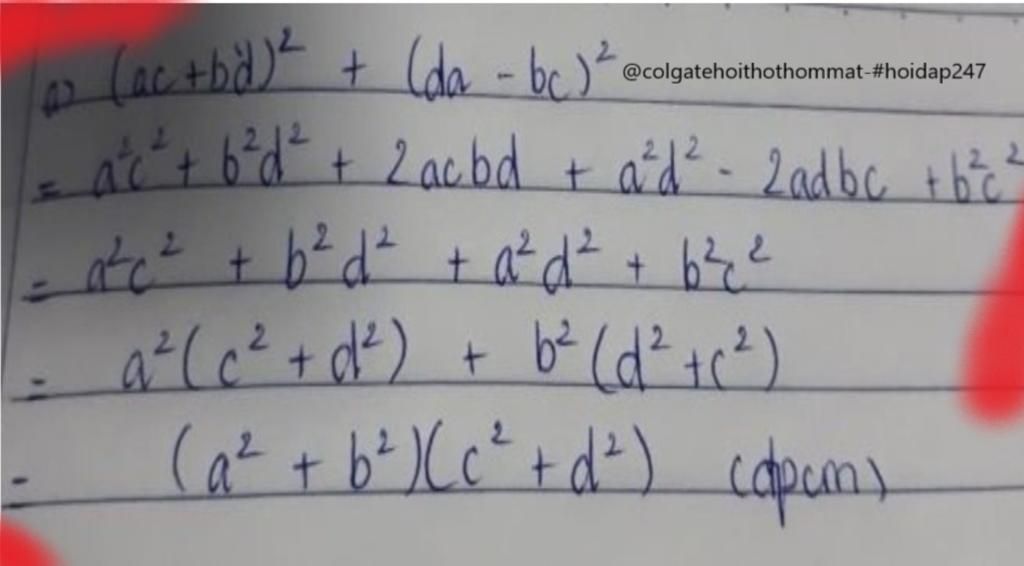 a) (ac+bd)² + (da - bc)² @colgatehoithothommat-#hoidap247
= a²c² + b²d² + 2acbd + a²d² - 2adbc + b²c²
= a²c² + b²d² + a²d² + b²c²
= a²(c² + d²) + b²(d² + c²)
= (a² + b²)(c² + d²) (đpcm)